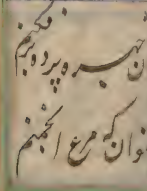 ن چهره پرده برفکنم
وان که مرغ آن چمنم